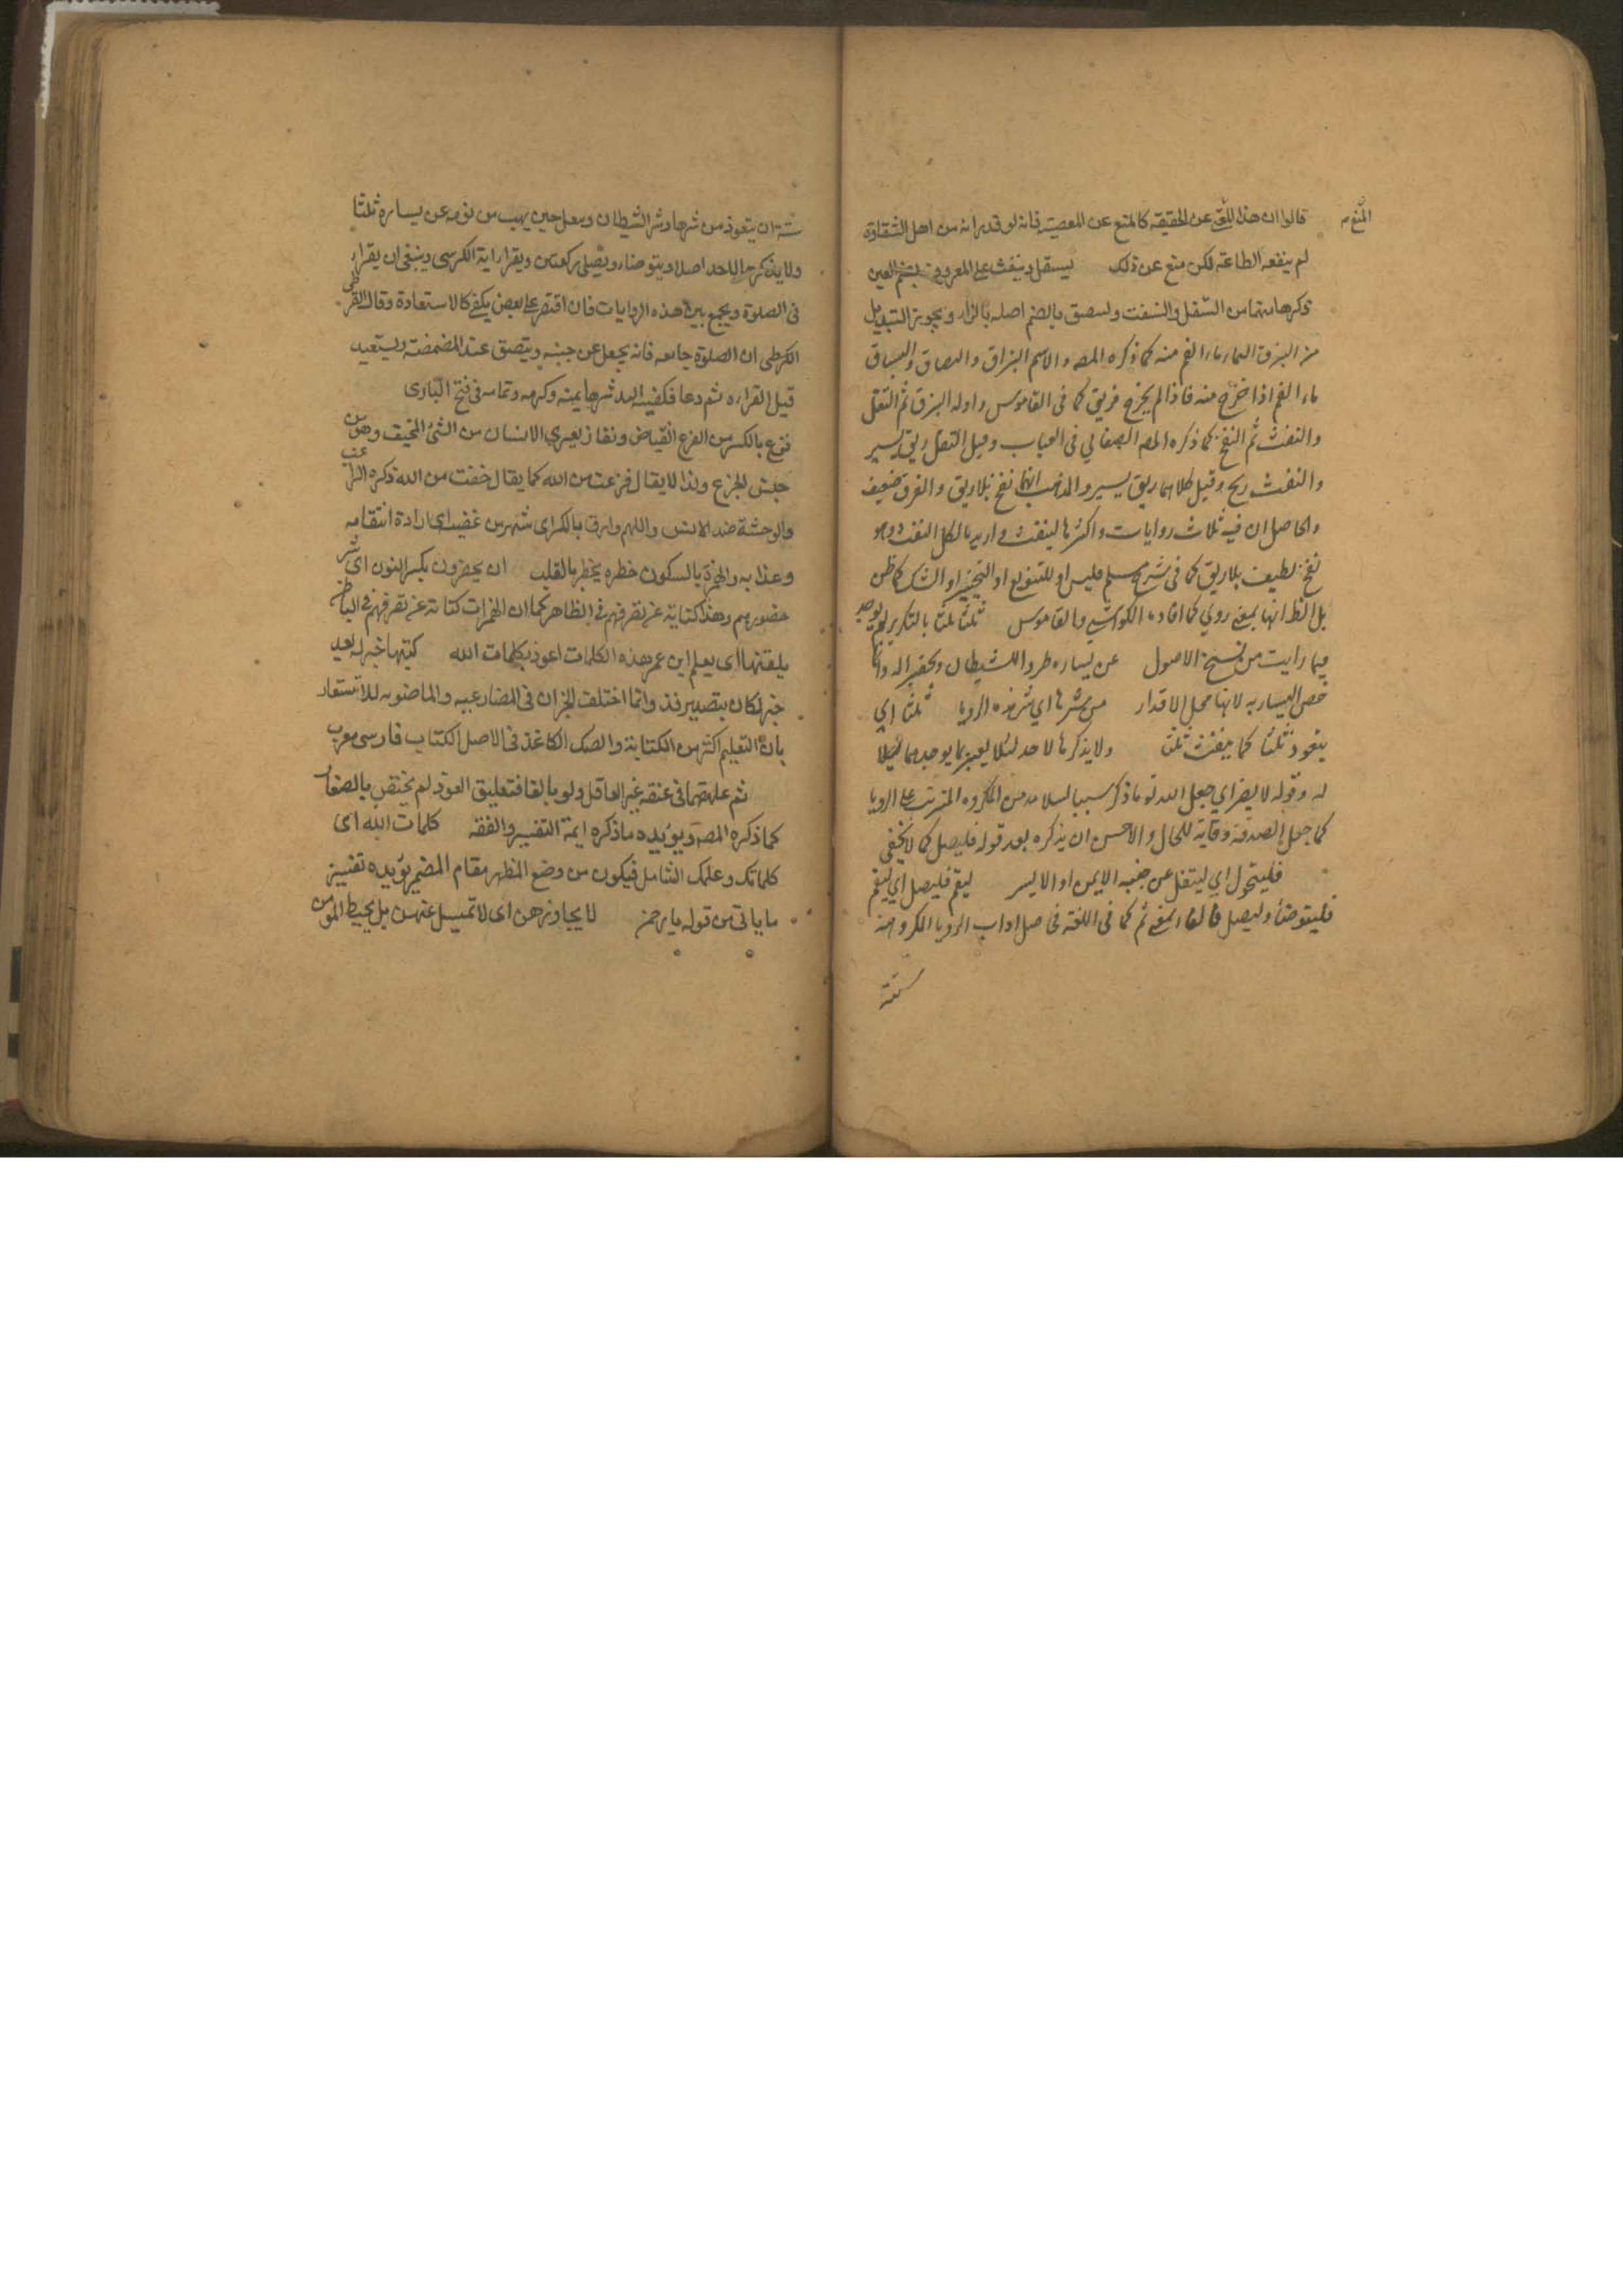 المنع م
قالوا ان هذا للمنع عن الحقيقة كالمنع عن المعصية فانه لو قدر انه من اهل الشقاوة
لم ينفعه الطاعة لكن منع عن ذلك يبسقل وينفث على المعروف بضم العين
وكسرها من التفل والنفث وليبصق بالضم اصله بالزاء ويجوز التبديل
من البزق ماء الفم منه كما ذكره المص والاسم البزاق والبصاق والبساق
ماء الفم اذا خرج منه فاذا لم يخرج فريق كما فى القاموس واوله البزق ثم التفل
والنفث ثم النفخ كما ذكره المص الصغاني فى العباب وقيل التفل ريق يسير
والنفث ريح وقيل كلاهما ريق يسير والمذهب انها نفخ بلا ريق والفرق ضعيف
والحاصل ان فيه ثلاث روايات واكثرها لينفث واريد بالكل النفث وهو
نفخ لطيف بلا ريق كما فى شرح مسلم فليس او للتنويع او التخيير او الشك كما ظن
بل انها بمعنى روي كما افاده الكواشي والقاموس ثلثا ثلثا بالتكرير لم يوجد
فيما رايت من نسخ الاصول عن يساره طردا للشيطان وتحقيرا له وانما
خص اليسار به لانها محل الاقذار من شرها اي شر هذه الرويا ثلثا اي
يتعوذ ثلثا كما ينفث ثلثا ولا يذكرها لاحد لئلا يعبر بما يوجب هما
له وقوله لا يضر اي جعل الله تع ما ذكر سببا لسلامه من المكروه المترتب على الرويا
كما جعل الصدقة وقاية للمال والاحسن ان يذكره بعد قوله فليصل كما لا يخفى
فليتحول اي لينتقل عن جنبه الايمن او الايسر ليقم فليصل اي ليقم
فليتوضأ وليصل فالفاء بمعنى ثم كما فى اللغة فى اصل اداب الرويا المكروهة
ستة
ستة ان يتعوذ من شرها وشر الشيطان ويتفل حين يهب من نومه عن يساره ثلثا
ولا يذكرها لاحد اصلا ويتوضاء ويصلى ركعتين ويقراء اية الكرسى وينبغى ان يقراء
فى الصلوة ويجمع بين هذه الروايات فان اقتصر على بعض يكفى كالاستعاذة وقال القرطبى
ان الصلوة جامعه فانه يجعل عن جنبه ويبصق عند المضمضة ويستعيد
قبل القراءه ثم دعا فكفيه الله شرها بمنه وكرمه وتمامه فى فتح البارى
فزع بالكسر من الفزع انقباض ونفار يعترى الانسان من الشئ المخيف وهو من
جنس الجزع ولذا لا يقال فزعت من الله كما يقال خفت من الله ذكره الراغب
والوحشة ضد الانس واللهم وارق بالكراى شهر من غضبه اى ارادة انتقامه
وعذابه والهمزة بالسكون خطره يخطر بالقلب ان يحضرون بكسر النون اى شر
حضورهم وهذا كناية عن تصرفهم فى الظاهر كما ان الهمزات كناية عن تصرفهم فى الباطن
يلقنها اى يعلم ابن عمر هذه الكلمات اعوذ بكلمات الله كتبها خبر له بعيد
خبر لكان بتصدير فذ وانما اختلف الخبران فى المضارعيه والماضويه للاشعار
بان التعليم اكثر من الكتابة والصك الكاغذ فى الاصل الكتاب فارسى معرب
ثم علقها فى عنقه غير العاقل ولو بالغا فتعليق العوذ لم يختص بالصغار
كما ذكره المصر ويؤيده ما ذكره ايمة التفسير والفقه كلمات الله اى
كلماتك وعلمك الشامل فيكون من وضع المظهر مقام المضمر يؤيده تفسير
ما ياتى من قوله يا رحمن لا يجاوزهن اى لا تميل عنهن بل يحيط المؤمن